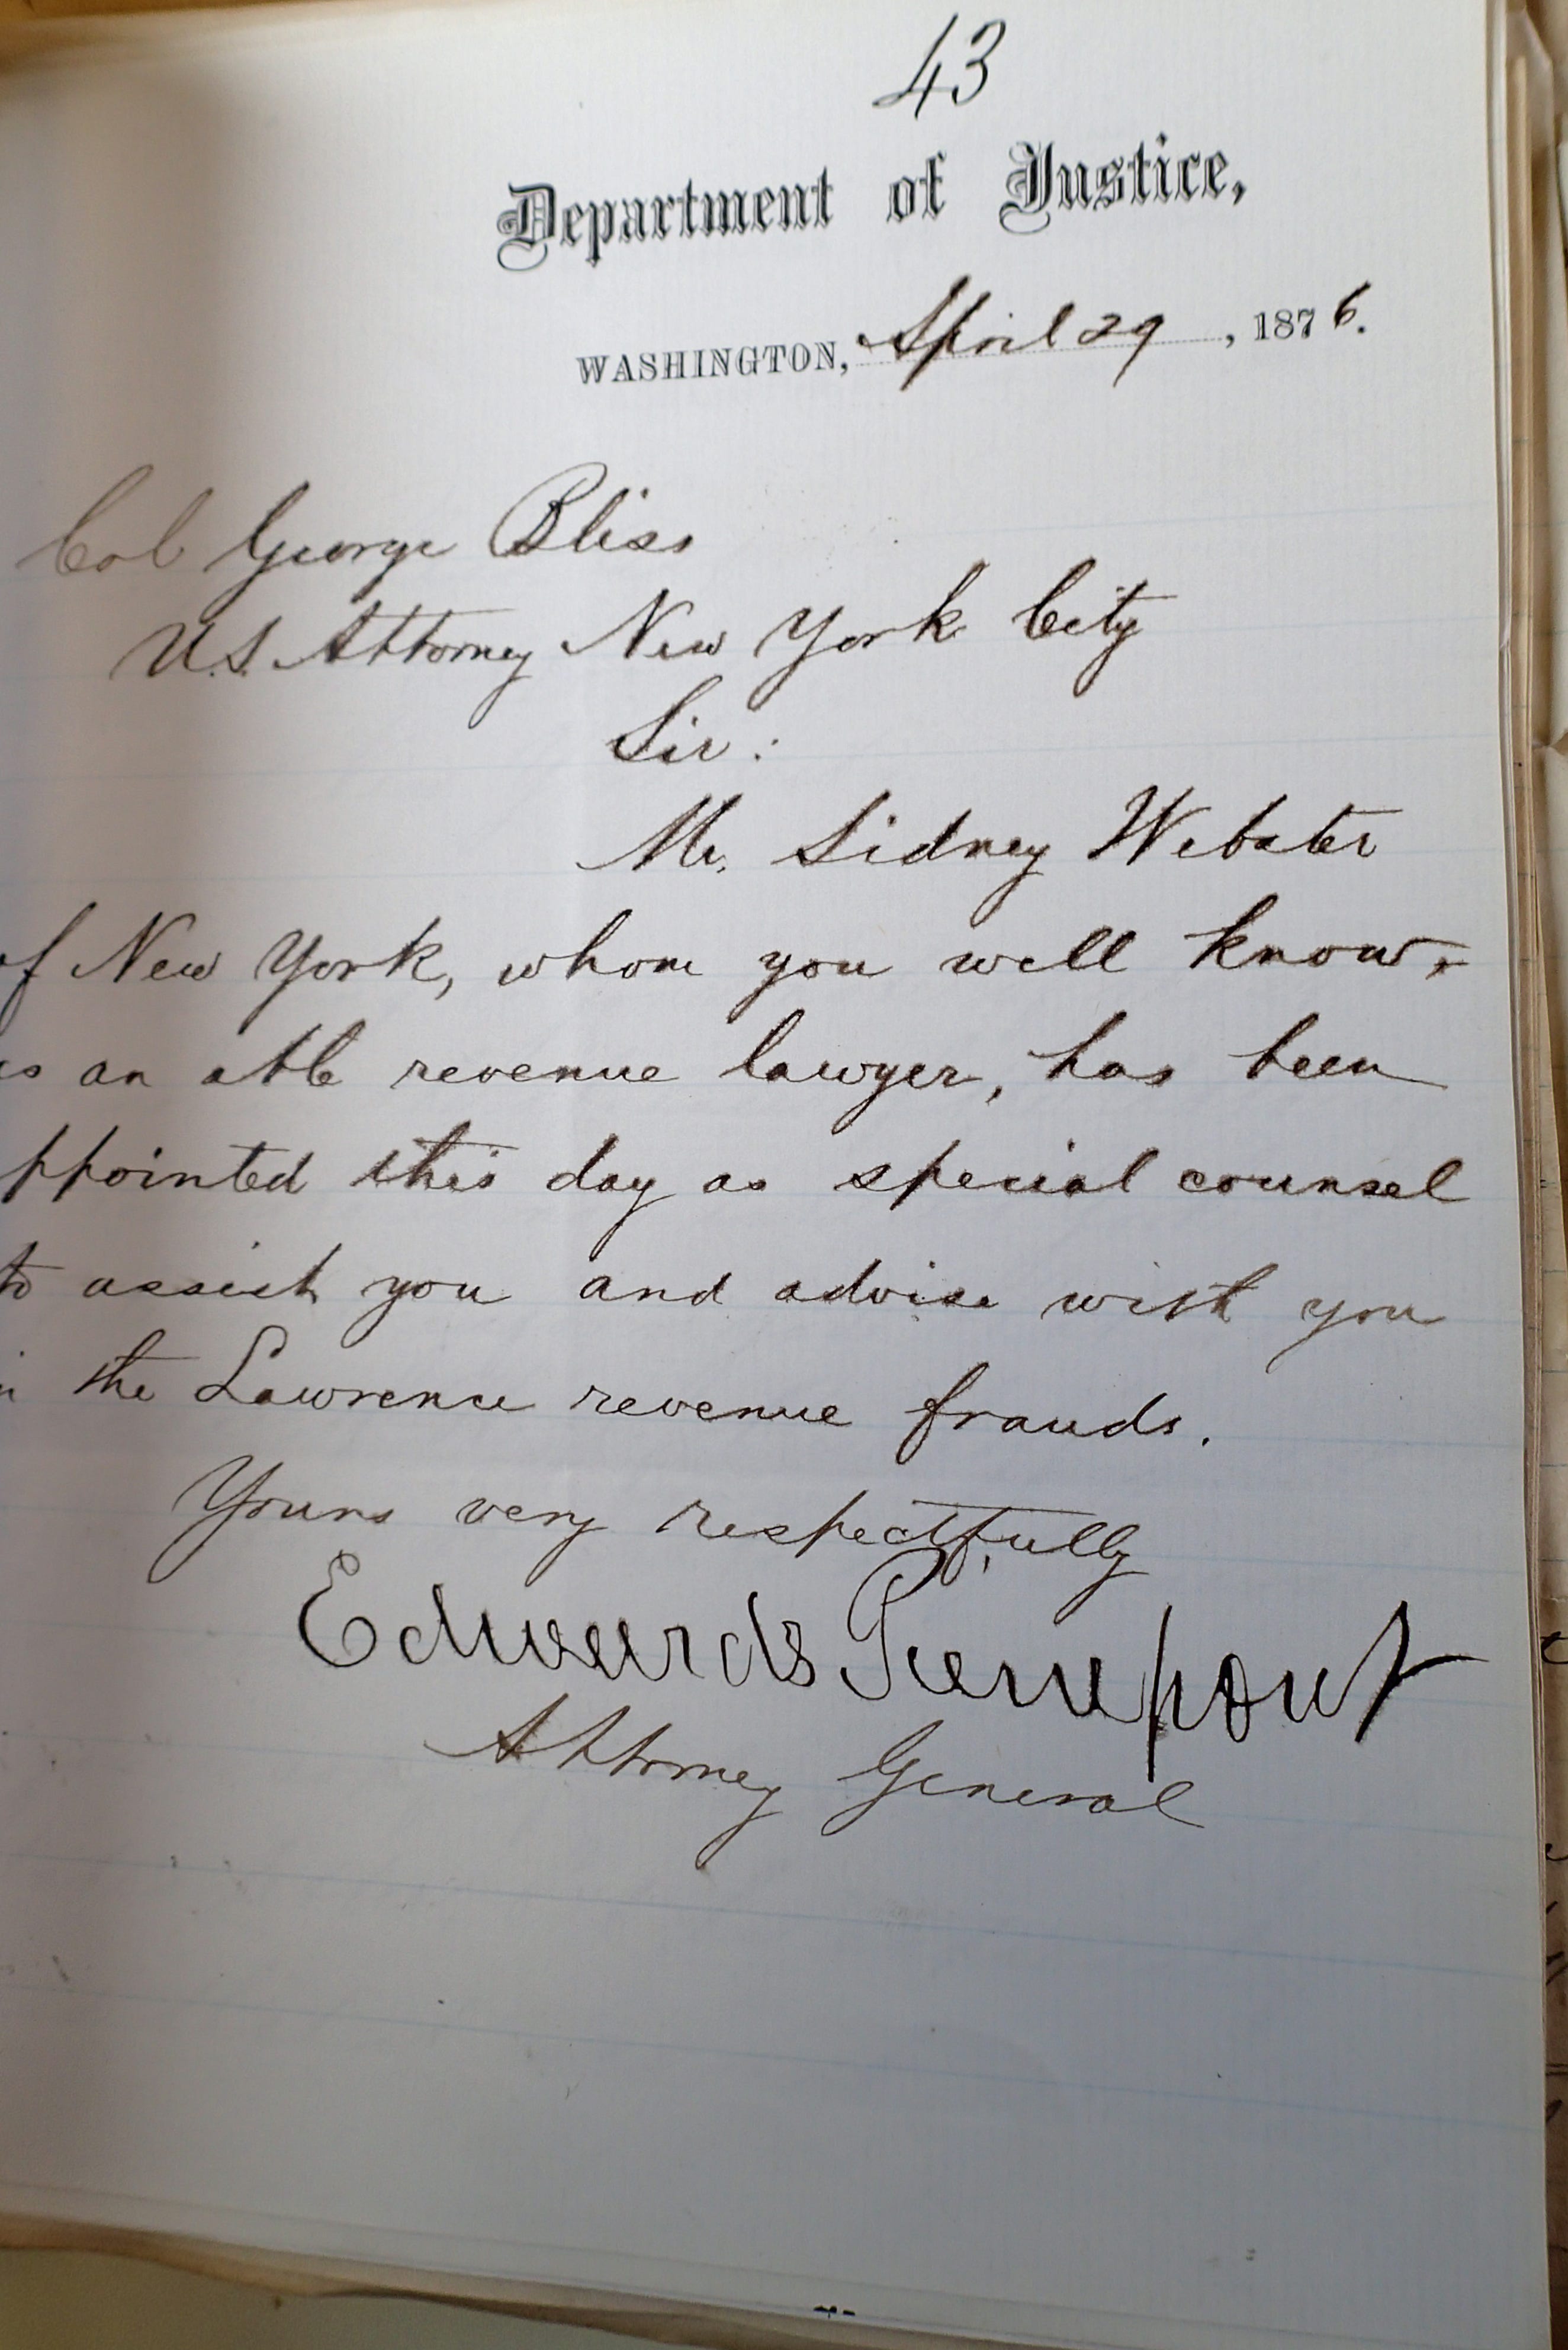 43
Department of Justice,
WASHINGTON, April 29, 1876.
Col George Bliss
U.S. Attorney New York City
Sir:
Mr. Sidney Webster
of New York, whom you well know,
as an able revenue lawyer, has been
ppointed this day as special counsel
to assist you and advise with you
the Lawrence revenue frauds.
Yours very respectfully
Edwards Pierrepont
Attorney General